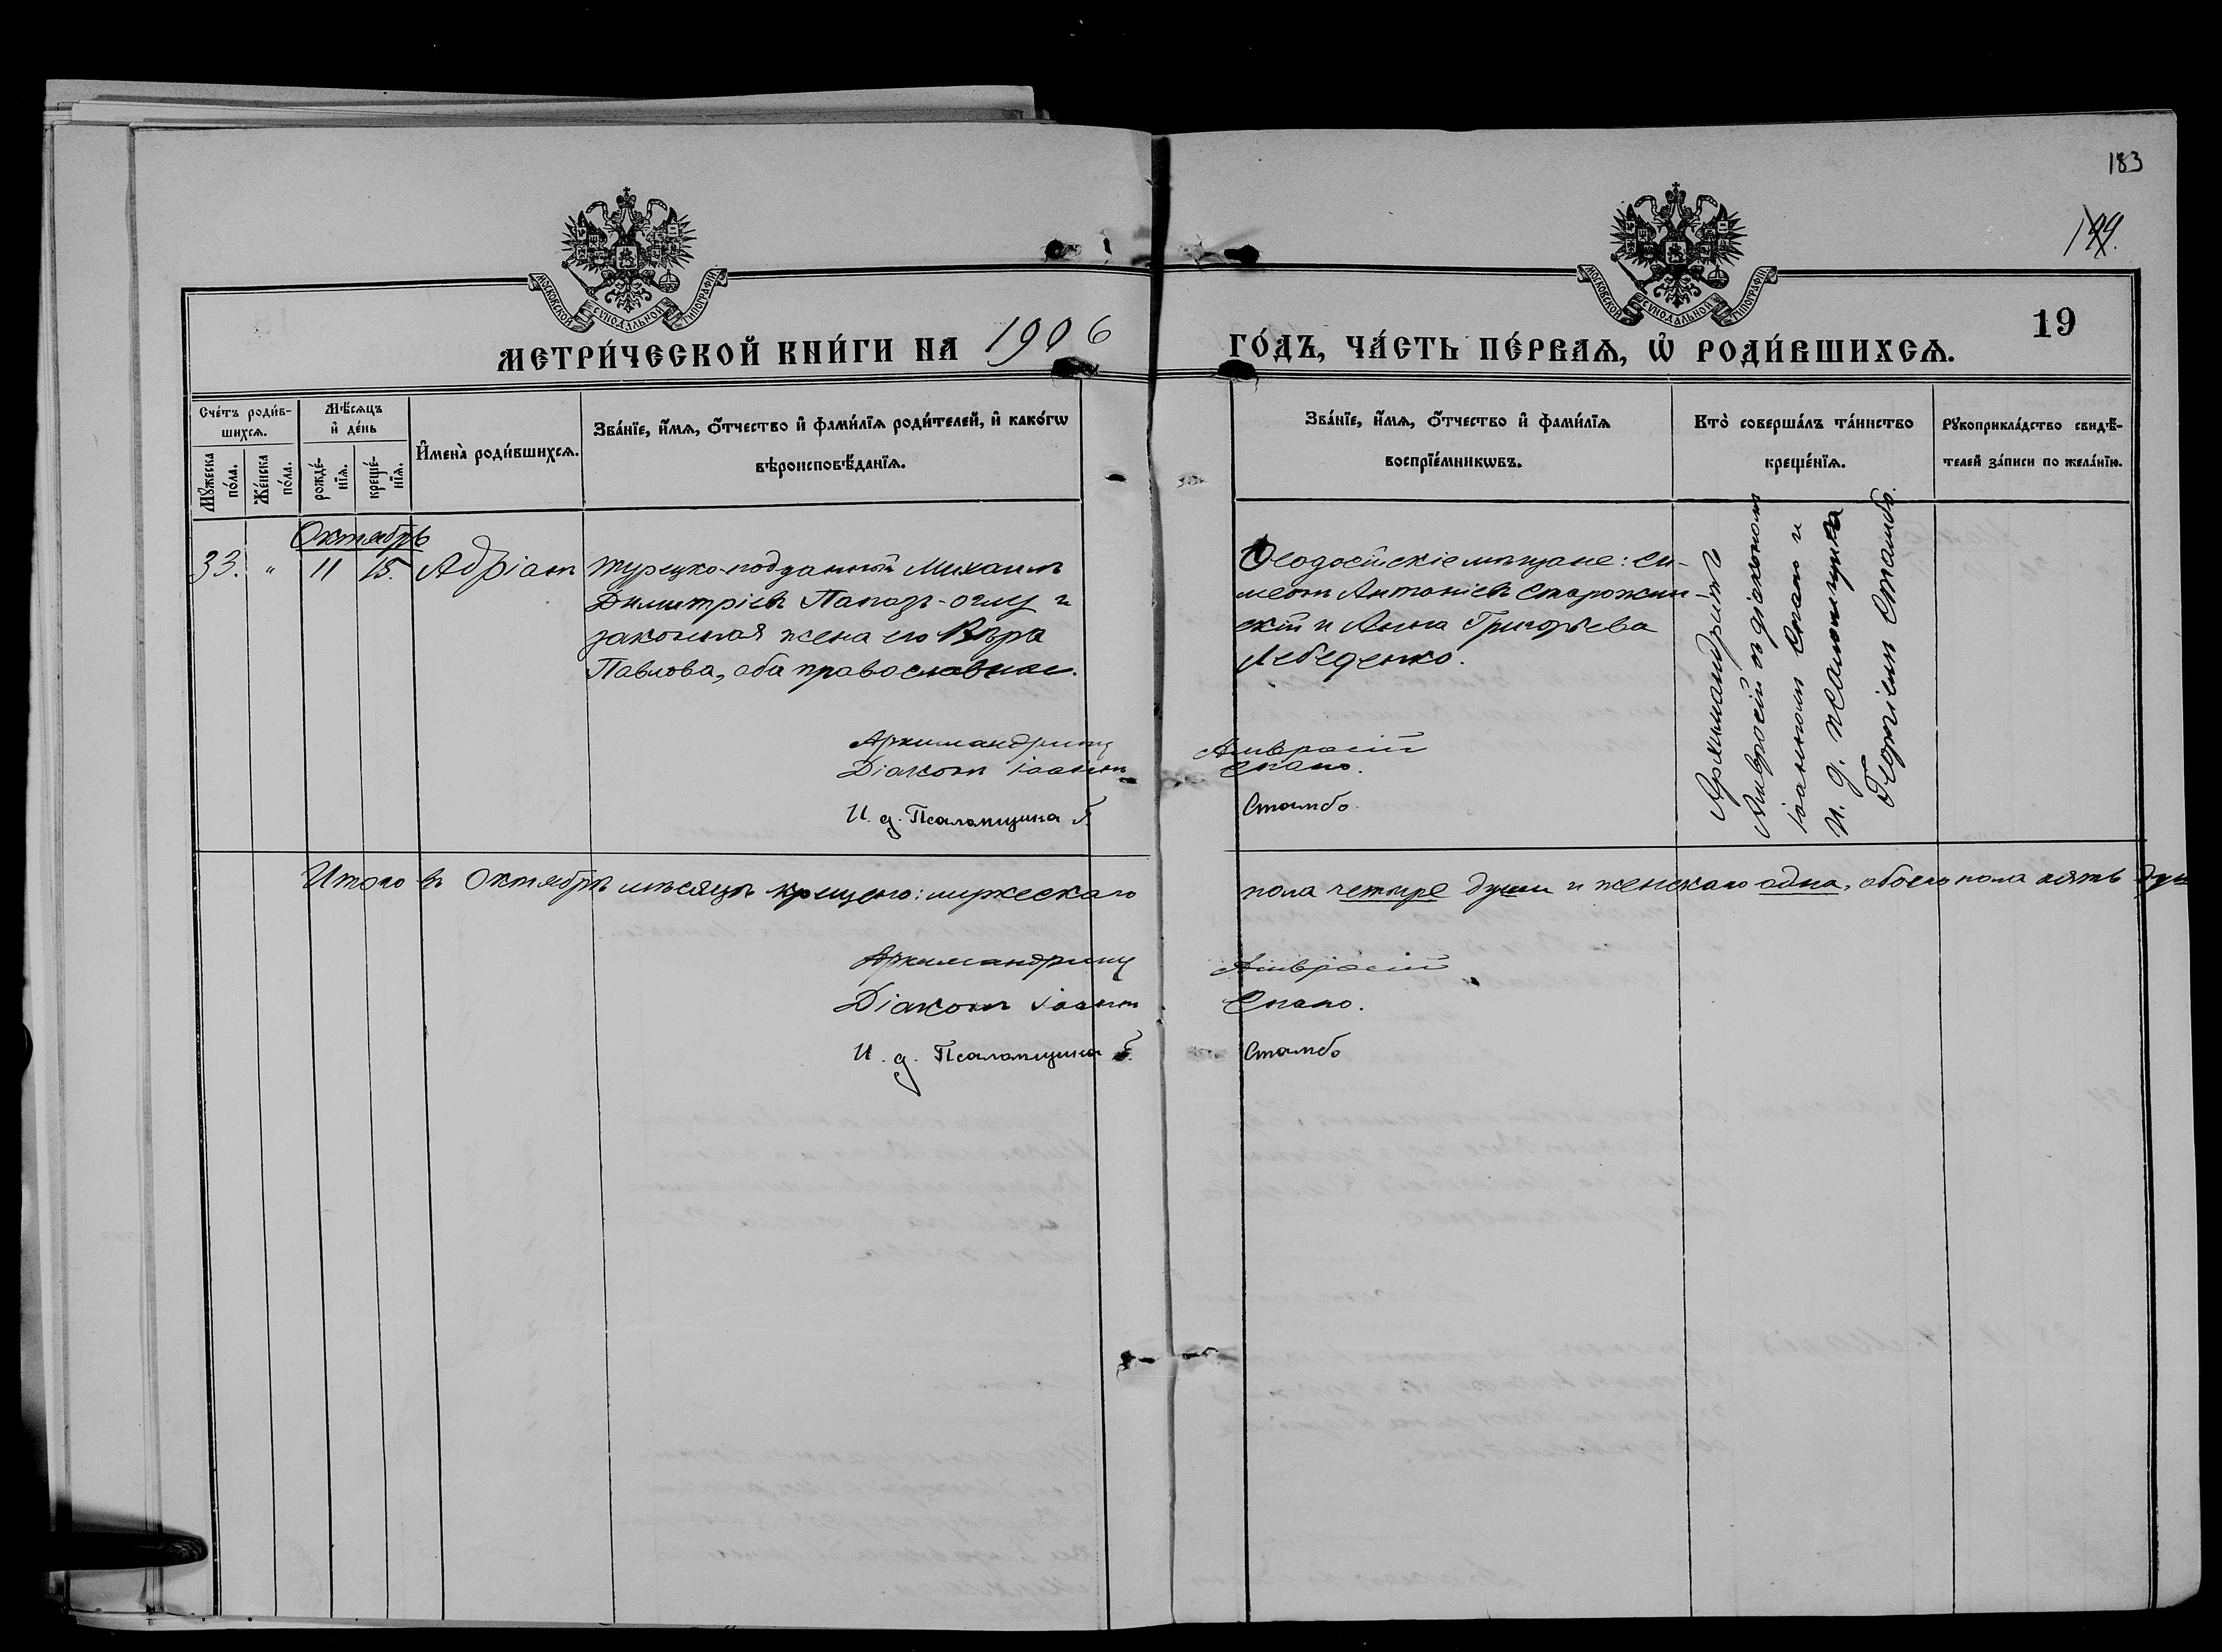 183
199.
МОСКОВСКОЙ СѴНОДАЛЬНОЙ ТИПОГРАФІИ
МОСКОВСКОЙ СѴНОДАЛЬНОЙ ТИПОГРАФІИ
19
МЕТРИ́ЧЕСКОЙ КНИ́ГИ НА 1906
ГО́ДЪ, ЧА́СТЬ ПЕ́РВАѦ, Ѡ҆ РОДИ́ВШИХСѦ.
Сче́тъ роди́в-
шихсѧ.
Мꙋ́жеска
по́ла.
Же́нска
по́ла.
Мѣ́сѧцъ
и҆ де́нь
рожде́-
нїѧ.
креще́-
нїѧ.
И҆мена̀ роди́вшихсѧ.
Зва́нїе, и҆́мѧ, ѻ҆́тчество и҆ фами́лїѧ роди́телей, и҆ како́гѡ
вѣроисповѣ́данїѧ.
Зва́нїе, и҆́мѧ, ѻ҆́тчество и҆ фами́лїѧ
воспрїе́мникѡвъ.
Кто̀ соверша́лъ та́инство
креще́нїѧ.
Рꙋкоприкла́дство свидѣ́-
телей за́писи по жела́нїю.
Октябрь
33. " 11 15. Адріан
Турецко-подданный Михаилъ
Димитріевъ Папазъ-оглу и
законная жена его Вѣра
Павлова, оба православные.
Ѳеодосійскіе мѣщане: Си-
меон Антоніевъ Старожин-
скій и Анна Григорьева
Лебеденко.
Архимандритъ
Амвросій съ діаконом
Іоанном Спано и
и. д. псаломщика
Георгіем Стамбо.
Архимандритъ Амвросій
Діакон Іоанн Спано.
И. д. Псаломщика Г. Стамбо
Итого въ Октябрѣ мѣсяцѣ крещено: мужескаго
пола четыре души и женскаго одна, обоего пола пять душ
Архимандритъ Амвросій
Діакон Іоанн Спано.
И. д. Псаломщика Г. Стамбо